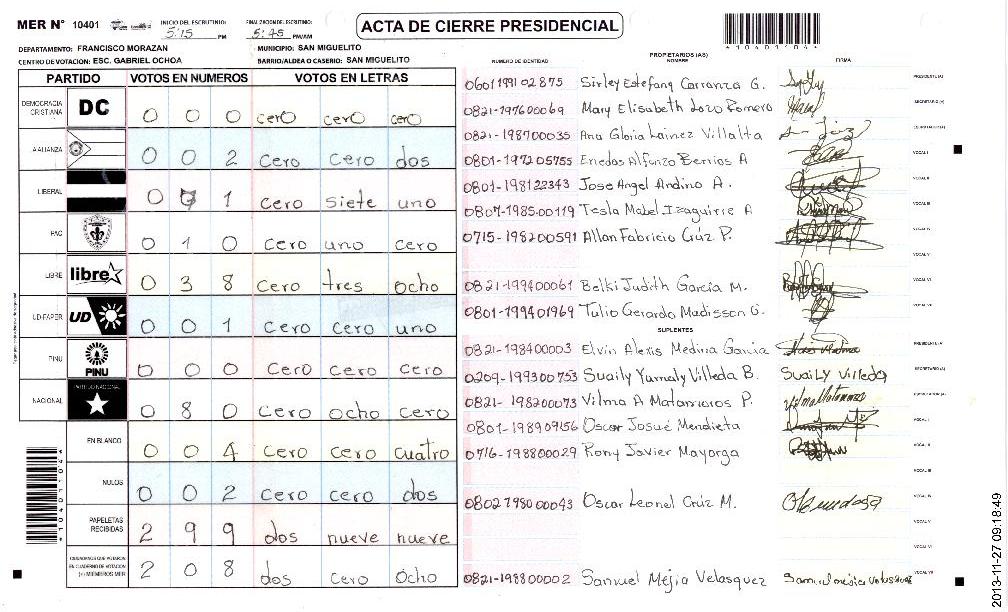 MER N° 10401
INICIO DEL ESCRUTINIO: 5:15 PM
FINALIZACION DEL ESCRUTINIO: 5:45 PM/AM
ACTA DE CIERRE PRESIDENCIAL
*10401104*
DEPARTAMENTO: FRANCISCO MORAZAN MUNICIPIO: SAN MIGUELITO
CENTRO DE VOTACION: ESC. GABRIEL OCHOA BARRIO/ALDEA O CASERIO: SAN MIGUELITO
PARTIDO VOTOS EN NUMEROS VOTOS EN LETRAS
DEMOCRACIA CRISTIANA DC 0 0 0 cero cero cero
LA ALIANZA 0 0 2 cero cero dos
LIBERAL 0 7 1 cero siete uno
PAC 0 1 0 cero uno cero
LIBRE libre 0 3 8 cero tres ocho
UD-FAPER UD 0 0 1 cero cero uno
PINU PINU 0 0 0 cero cero cero
NACIONAL PARTIDO NACIONAL 0 8 0 cero ocho cero
EN BLANCO 0 0 4 cero cero cuatro
NULOS 0 0 2 cero cero dos
PAPELETAS RECIBIDAS 2 9 9 dos nueve nueve
CIUDADANOS QUE VOTARON EN CUADERNO DE VOTACION (+) MIEMBROS MER 2 0 8 dos cero ocho
PROPIETARIOS (AS)
NUMERO DE IDENTIDAD NOMBRE FIRMA
0601199102875 Sirley Estefany Carranza G. PRESIDENTE (A)
0821-197600069 Mary Elisabeth Lozo Romero SECRETARIO (A)
0821-198700035 Ana Gloria Lainez Villalta ESCRUTADOR (A)
0801-197205755 Enedas Alfonzo Berrios A VOCAL I
0801-198122343 Jose Angel Andino A. VOCAL II
0807-1985-00119 Tesla Mabel Izaguirre A VOCAL III
0715-198200591 Allan Fabricio Crúz P. VOCAL IV
VOCAL V
0821-199400061 Belki Judith García M. VOCAL VI
0801-199401969 Tulio Gerardo Madisson G. VOCAL VII
SUPLENTES
0821-198400003 Elvin Alexis Medina Garcia PRESIDENTE (A)
0209-199300753 Suaily Yamely Villeda B. Suaily Villeda SECRETARIO (A)
0821-198200073 Vilma A Matamoros P. Vilma Matamoros ESCRUTADOR (A)
0801-198909156 Oscar Josué Mendieta VOCAL I
0716-198800029 Rony Javier Mayorga VOCAL II
VOCAL III
0802798000043 Oscar Leonel Crúz M. VOCAL IV
VOCAL V
VOCAL VI
0821-198800002 Samuel Mejia Velasquez Samuel mejia Velasquez VOCAL VII
*10401104*
2013-11-27 09:18:49